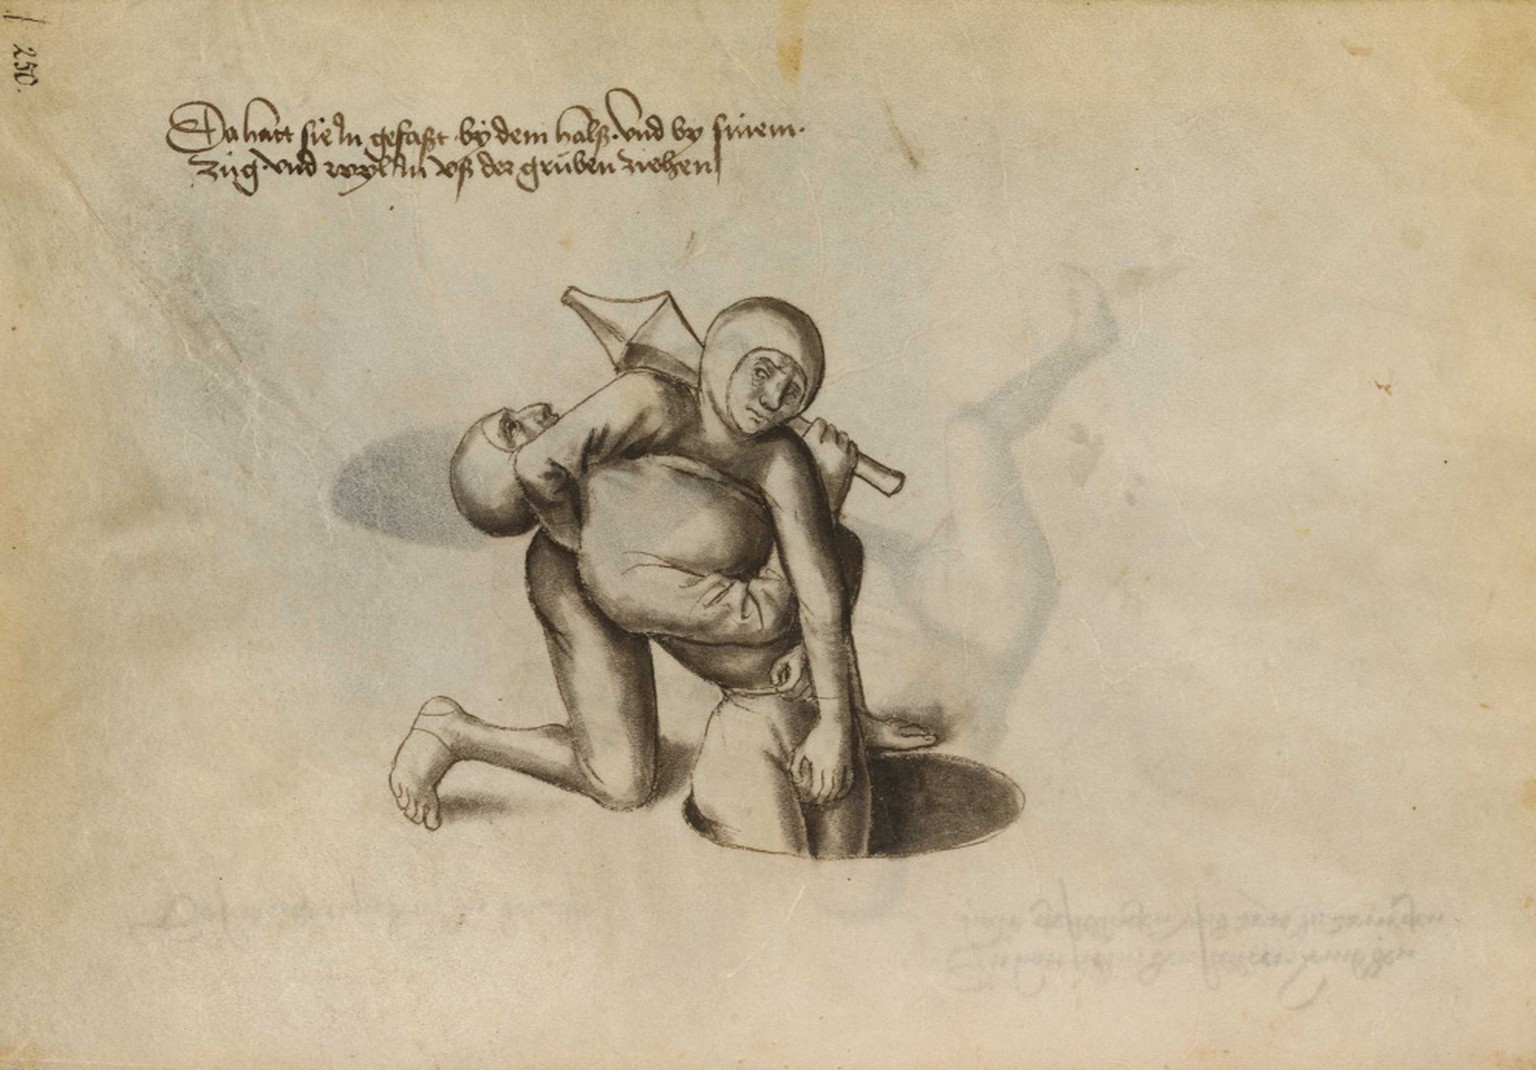 250.
Da hatt sie In gefasßt by dem halß. Vnd by sinem.
züg. vnd wyl In vß der grüben ziehen